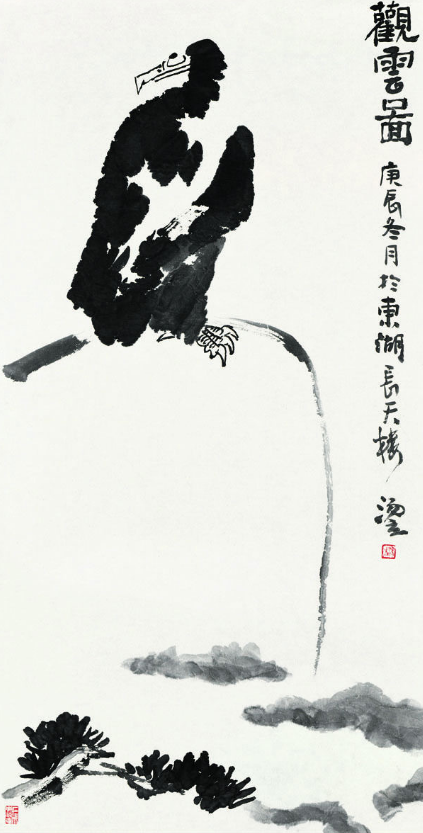 觀雲畐
庚辰冬月於東湖長天樓